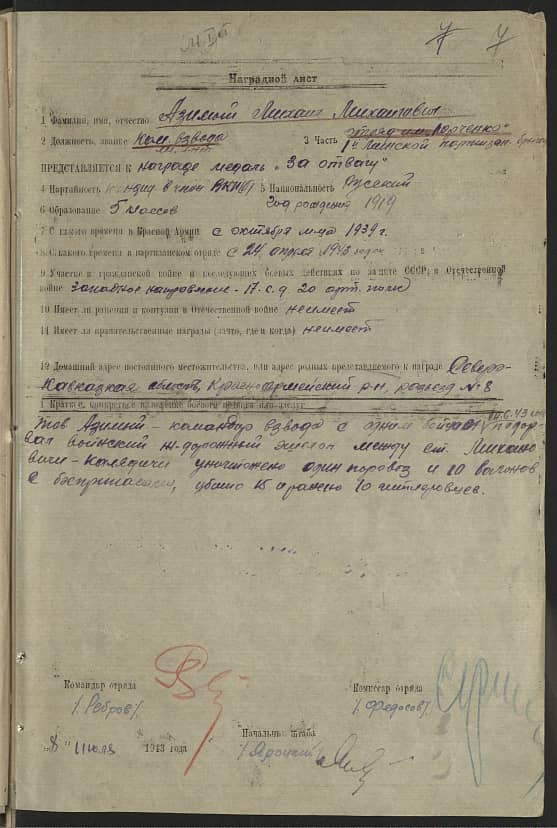 7 7
Наградной лист
1 Фамилия, имя, отчество Азимий Михаил Михайлович
2 Должность, звание Ком. взвода 3 Часть отряд им. Марченко
мл. л-нт 1й Минской партизан. бригады
ПРЕДСТАВЛЯЕТСЯ к награде медаль „За отвагу"
4 Партийность канд. в член. ВКП/б/ 5 Национальность Русский
6 Образование 5 классов Год рождения 1919
7 С какого времени в Красной Армии с октября м-ца 1939 г.
8 С какого времени в партизанском отряде с 24 апреля 1943 года
9 Участие в гражданской войне и последующих боевых действиях по защите СССР, в Отечественной
войне Западное направление - 17 с.д. 20 арт. полк
10 Имеет ли ранения и контузии в Отечественной войне не имеет
11 Имеет ли правительственные награды (за что, где и когда) не имеет
12 Домашний адрес постоянного местожительства, или адрес родных представляемого к награде Северо-
Кавказская область, Красноармейский р-н, разъезд № 8
1 Краткое, конкретное изложение боевого подвига или заслуг
Тов Азимий - командир взвода с одним бойцом 10.6.43 подор-
вал воинский ж-дорожный эшелон между ст. Михано-
вичи - Колядичи уничтожено один паровоз и 10 вагонов
с боеприпасами, убито 15 и ранено 10 гитлеровцев.
Командир отряда Комиссар отряда
/Ребров/ /Федосов/
Начальник штаба
„8" июля 1943 года /Яроцкий/